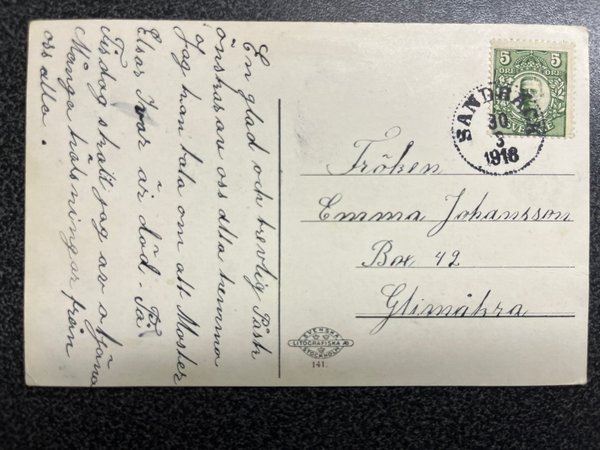 En glad och trevlig Påsk
önskas av oss alla hemma
Jag kan tala om att Moster
Elsas Ivar är död. På
Tisdag skall jag av
Många hälsningar från
oss alla.
5 5
ÖRE ÖRE
SANDBÄCK
30
3
1916
Fröken
Emma Johansson
Box 42
Glimåkra
SVENSKA
LITOGRAFISKA AB
STOCKHOLM
141.